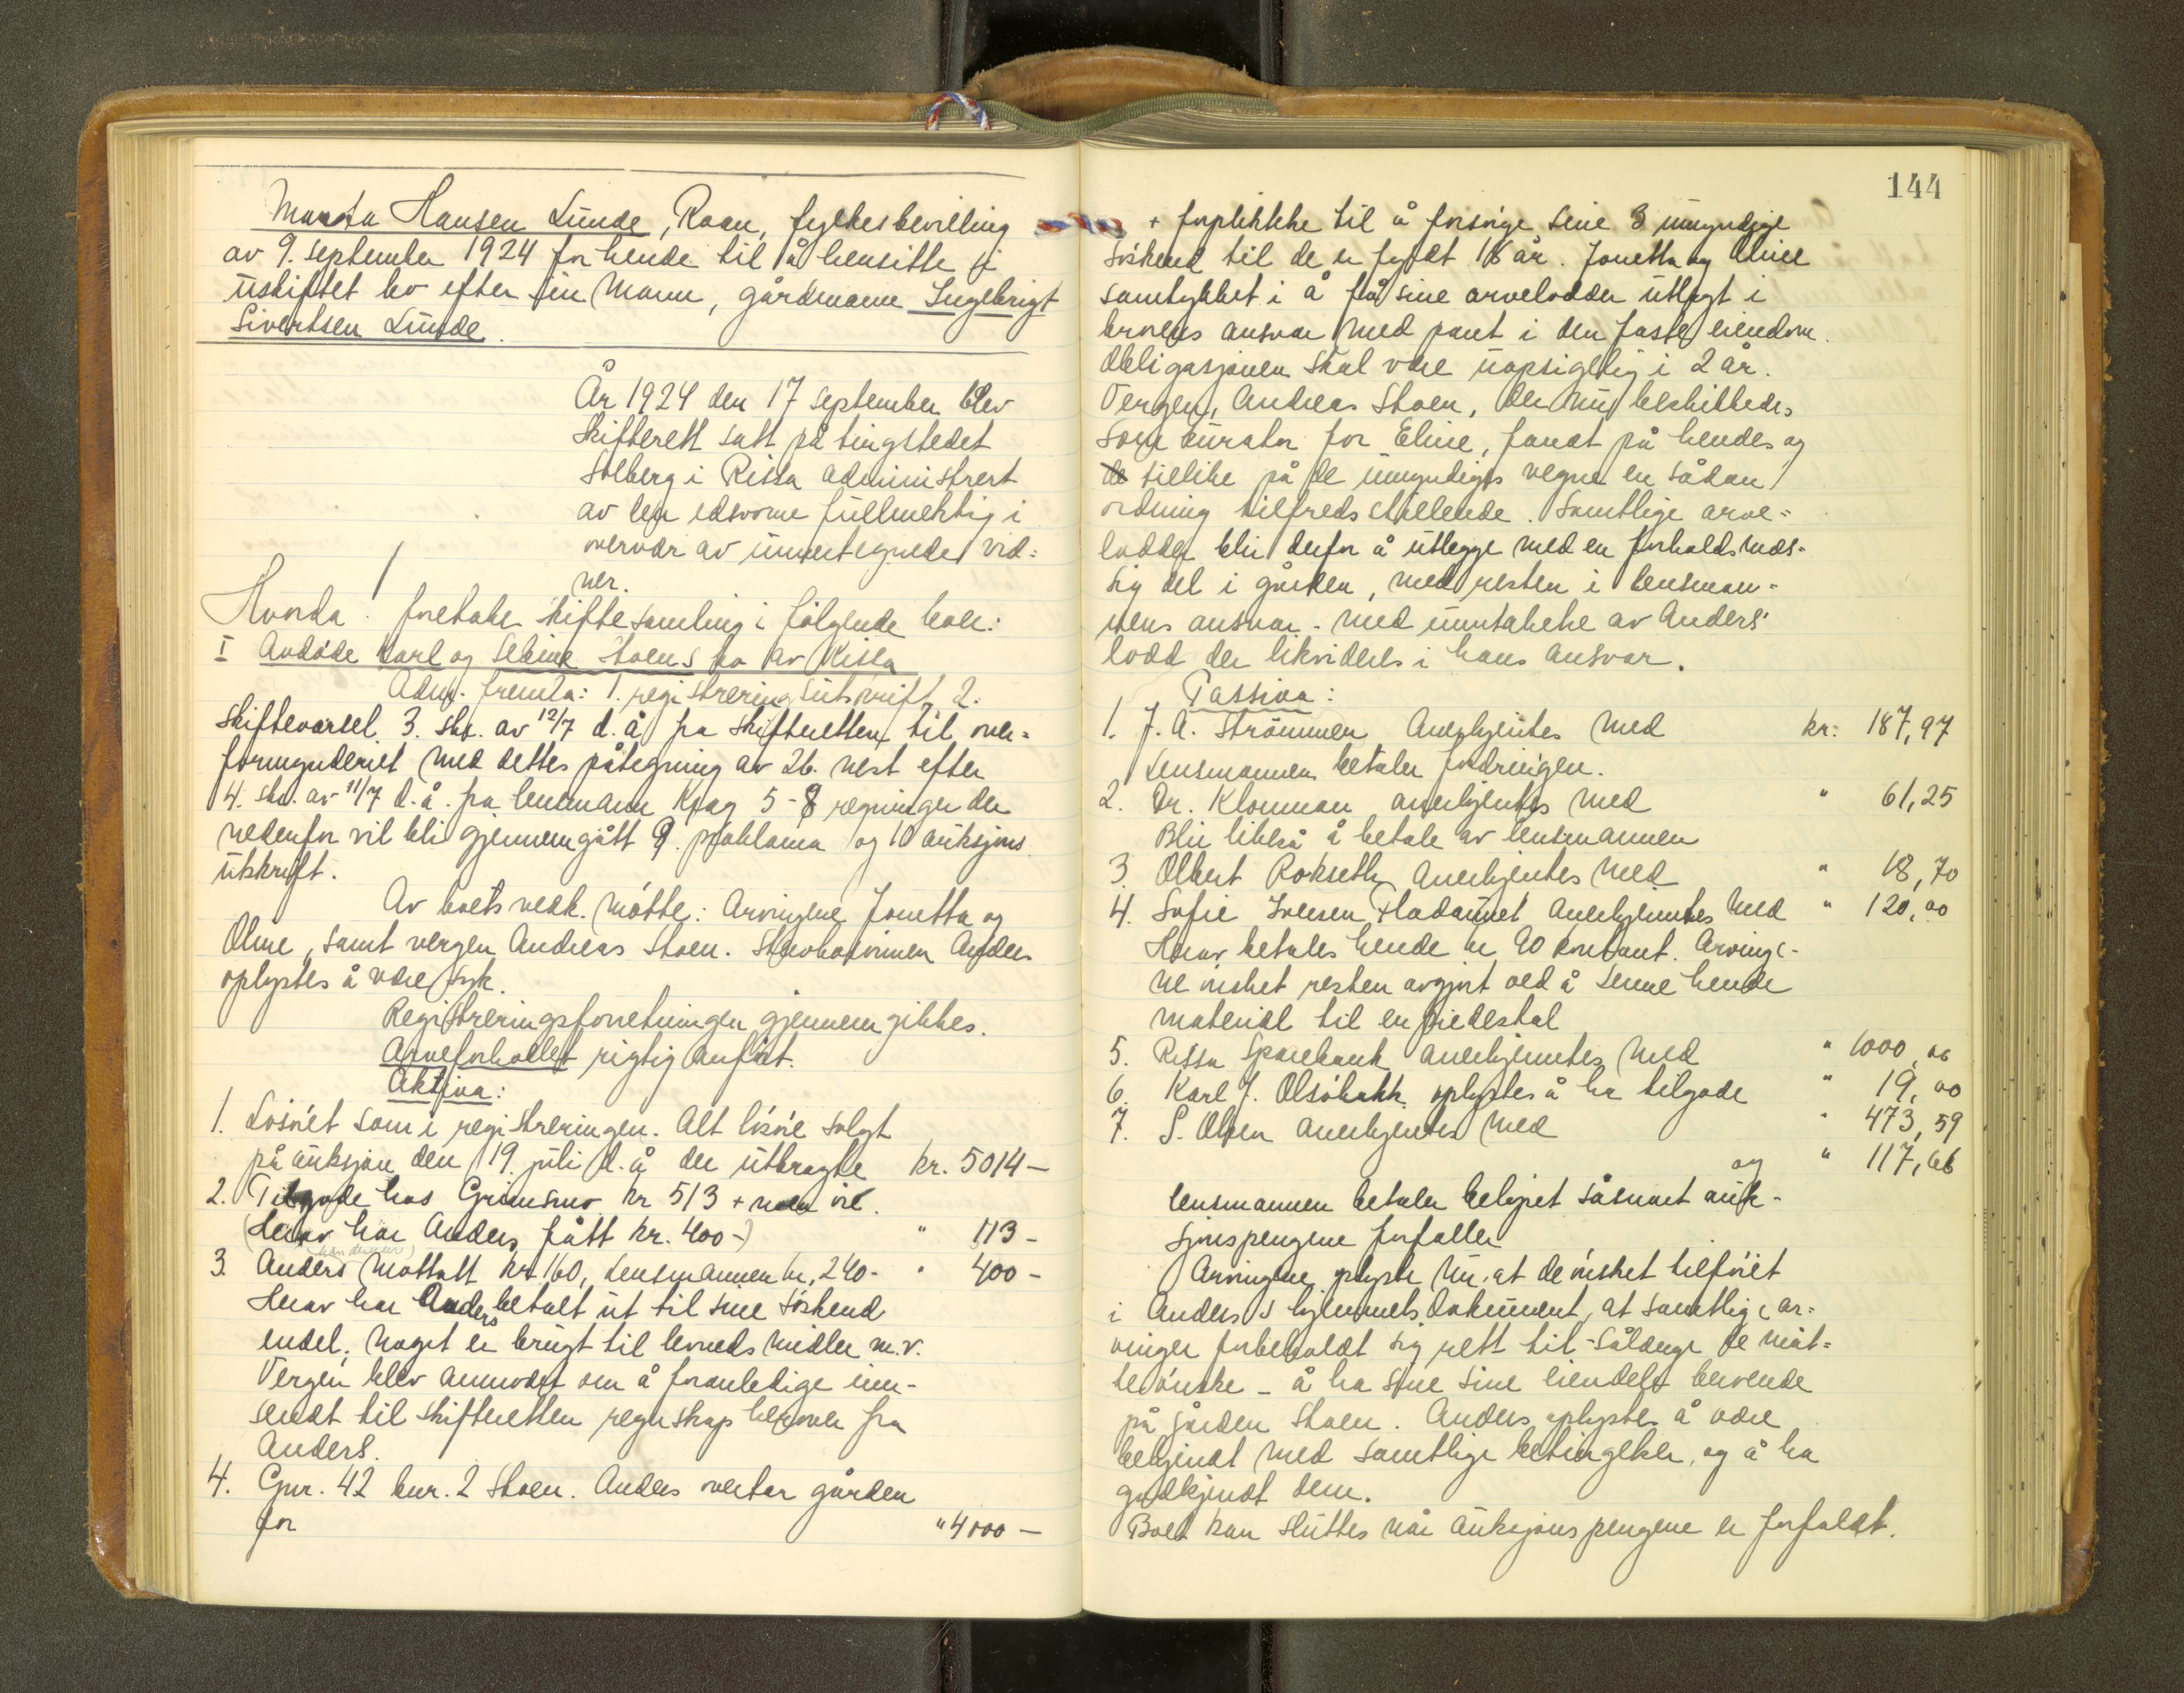 Marta Hansen Lunde, Roan, fylkesbevilling
av 9. september 1924 for hende til å hensitte i
uskiftet bo efter sin mann, gårdmann Ingebrigt
Sivertsen Lunde.
År 1924 den 17 september blev
skifterett satt på tingstedet
Solberg i Rissa administrert
av den edsvorne fullmektig i
overvær av unnertegnede vid=
ner.
Hvorda! foretokes skiftesamling i følgende boer:
I Avdøde Karl og Stoens bo av Rissa
Adm. fremla: 1. registreringsutskrift, 2.
skiftevarsel 3. skr. av 12/7 d.å. fra skifteretten til over=
formynderiet med dettes påtegning av 26. nest efter
4. skr. av 11/7 d.å. fra lensmann Krag 5-8 regninger der
nedenfor vil bli gjennemgått 9. proklama og 10 auksjons
utskrift.
Av boets vedk. møtte: Arvingene Jonetta og
Oline, samt vergen Andreas Stoen. Anders
oplystes å være syk.
Registreringsforretningen gjennemgikkes.
Arveforholdet rigtig anført.
Aktiva:
1. Løsøret som i registreringen. Alt løsøre solgt
på auksjon den 19. juli d.å. der utbragte kr. 5014 —
2. Tilgode hos Grimsmo kr 513 + noen øre.
(Herav har Anders fått kr. 400-) " 113 —
3. Anders mottatt kr. 160, lensmannen kr. 240- " 400 —
Herav har Anders betalt ut til sine søskend
endel, noget er brugt til levnedsmidler m.v.
Vergen blev anmodet om å foranledige inn-
sendt til skifteretten regnskap herover fra
Anders.
4. Gnr. 42 bnr. 2 Stoen. Anders overtar gården
for " 4000 —
144
+ forpliktelse til å forsørge sine 3 umyndige
søskend til de er fyldt 16 år. Jonetta og Oline
samtykket i å få sine arvelodder utlagt i
brorens ansvar med pant i den faste eiendom.
Obligasjonen skal være uopsigelig i 2 år.
Vergen, Andreas Stoen, der nu beskikkedes
som kurator for Eline, fandt på hendes og
de tillike på de umyndiges vegne en sådan
ordning tilfredsstillende. Samtlige arve=
lodder blir derfor å utlegge med en forholdsmæs-
sig del i gården, med resten i lensman-
nens ansvar - med unntakelse av Anders'
lodd der likvideres i hans ansvar.
Passiva:
1. J. A. Strømmen Anerkjentes med kr: 187,97
Lensmannen betaler fordringen.
2. Dr. Klouman anerkjentes med " 61,25
Blir likeså å betale av lensmannen
3. Olbert Rokseth Anerkjentes med " 18,70
4. Sofie Iversen Fladaunet Anerkjentes med " 120,00
Herav betales hende kr 90 kontant. Arvinge-
ne ønsket resten avgjort ved å levne hende
material til en piedestal
5. Rissa Sparebank anerkjentes med " 1000,00
6. Karl J. Olsøbakk oplystes å ha tilgode " 19,00
7. S. Olsen anerkjentes med " 473,59
og " 117,66
lensmannen betaler beløpet såsnart auk-
sjonspengene forfaller
Arvingene oplyste nu, at de ønsket tilføiet
i Anders's hjemmelsdokument, at samtlige ar=
vinger forbeholdt sig rett til - sålenge de måt=
te ønske - å ha sine eiendele beroende
på gården Stoen. Anders oplystes å være
bekjendt med samtlige betingelser, og å ha
godkjendt dem.
Boet kan sluttes når auksjonspengene er forfaldt.